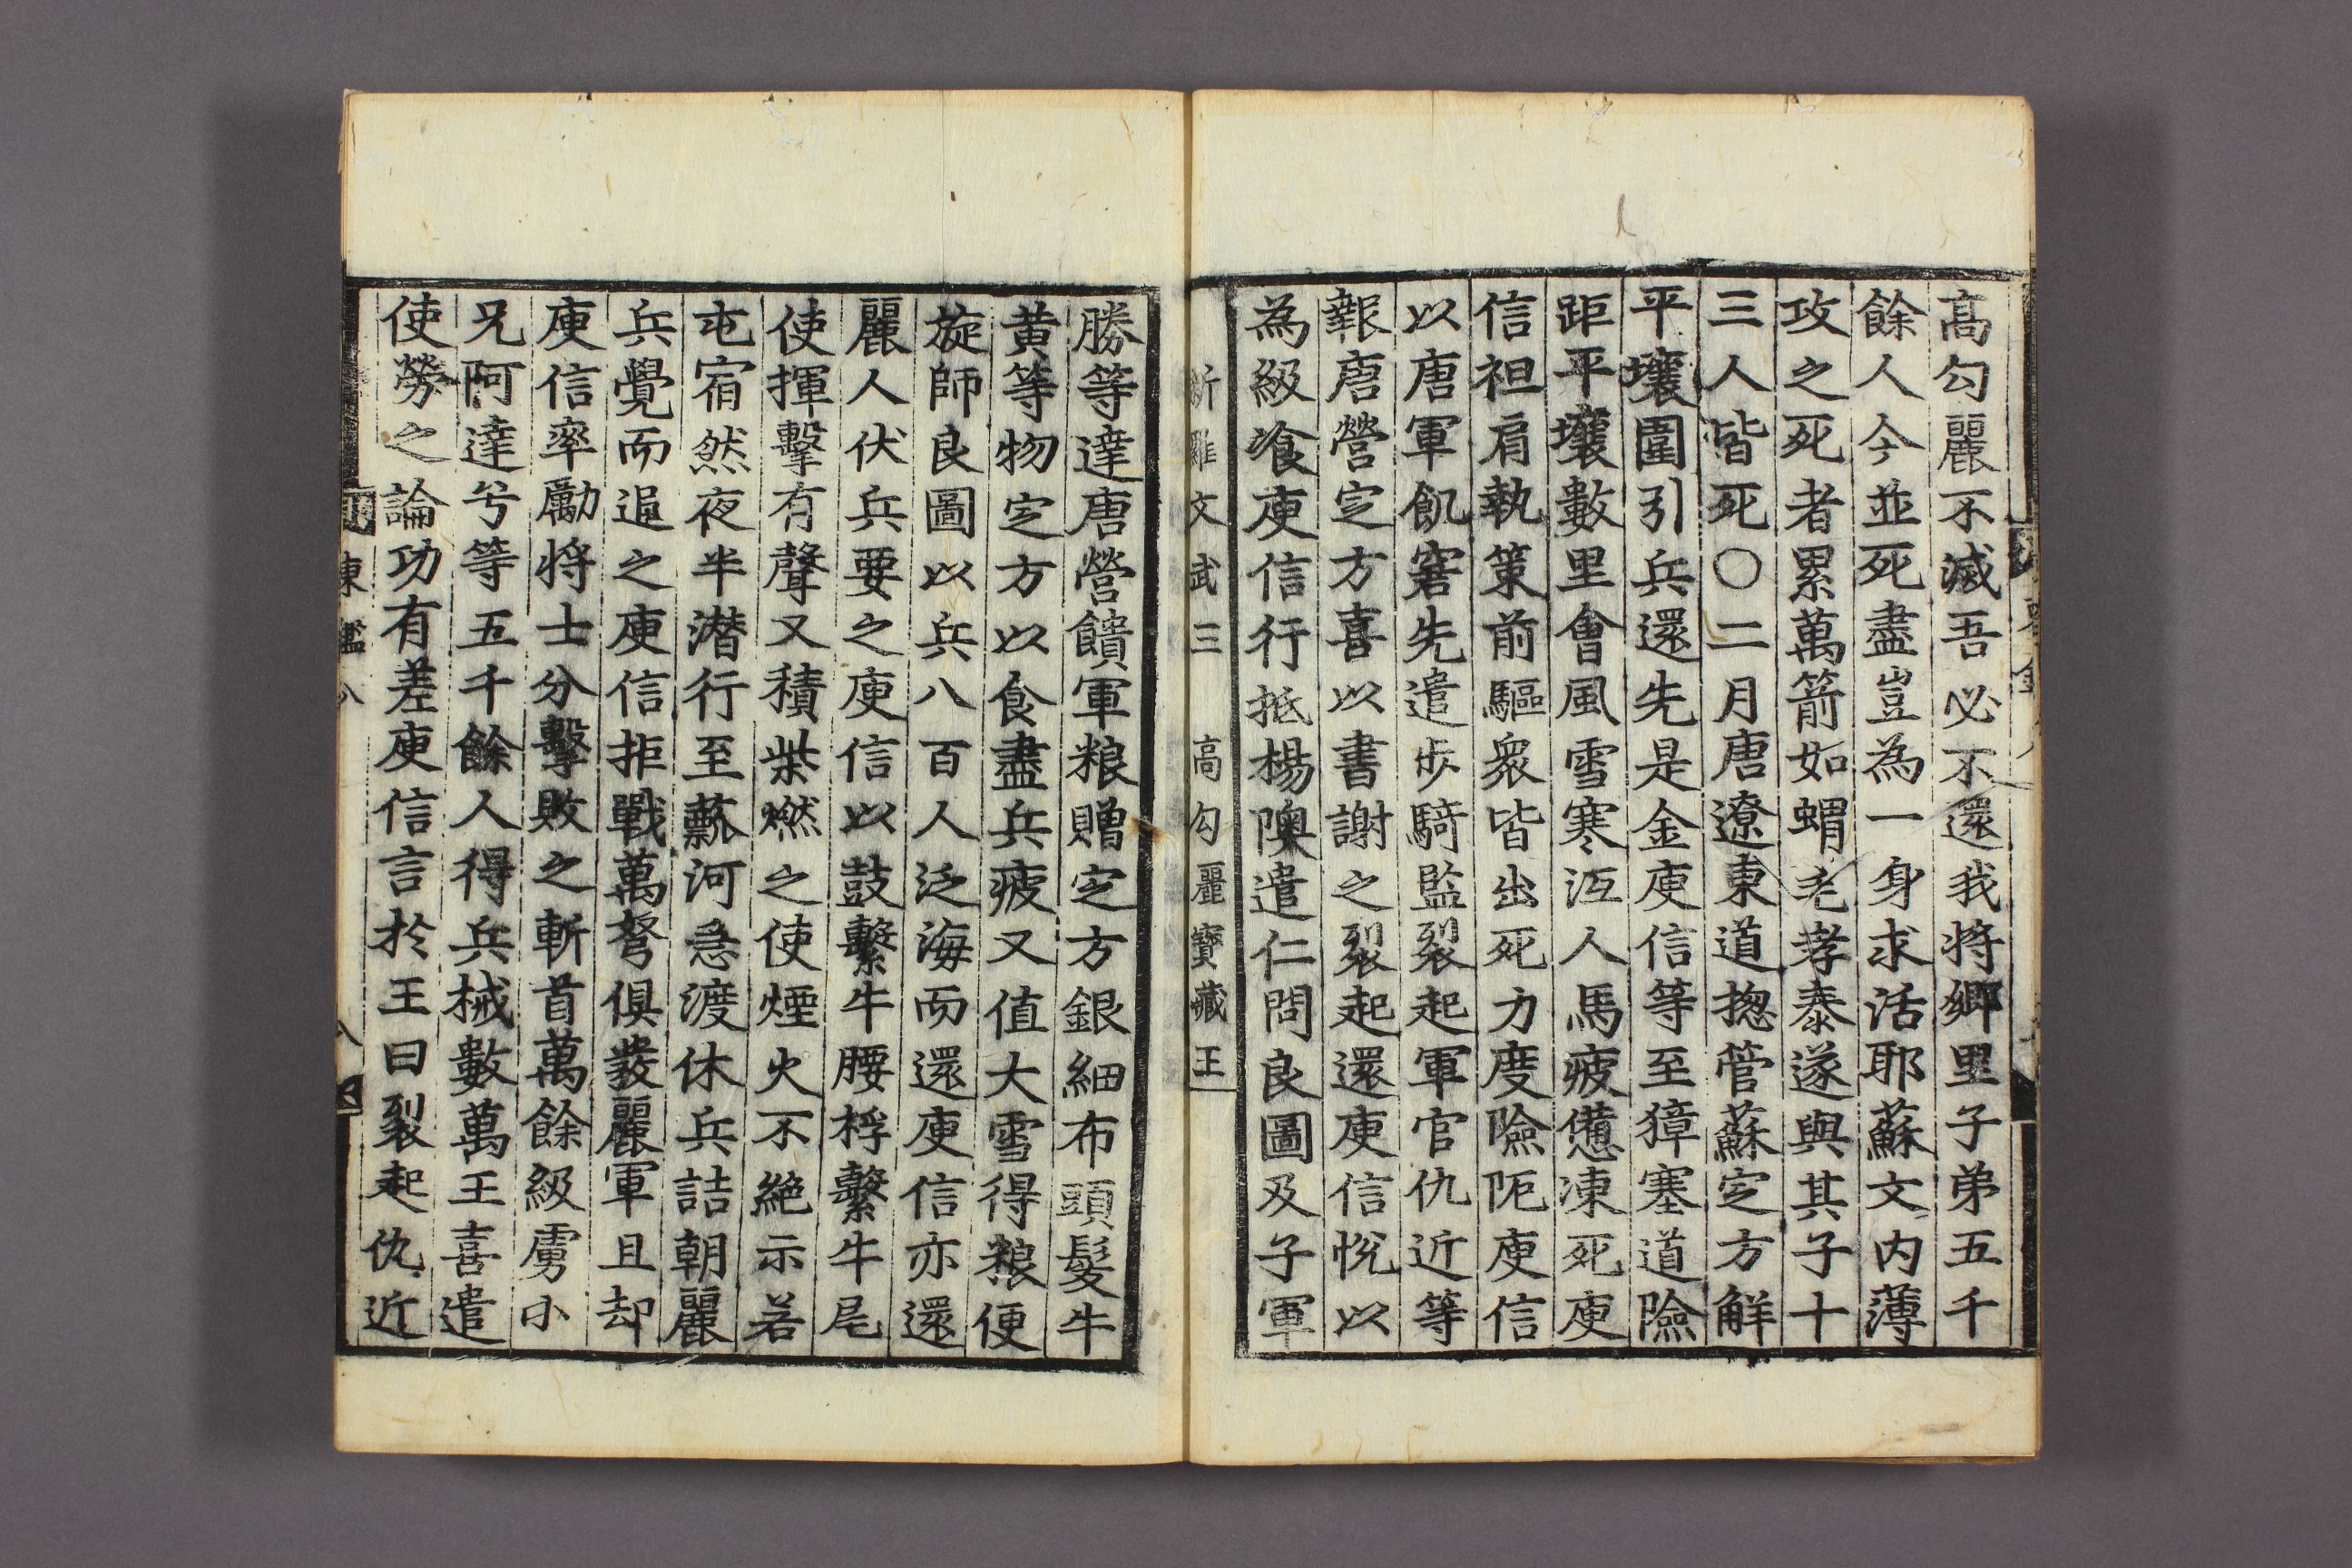 高勾麗不滅吾必不還我將鄉里子弟五千
餘人今並死盡豈為一身求活耶蘇文內薄
攻之死者累萬箭如蝟毛孝泰遂與其子十
三人皆死〇二月唐遼東道摠管蘇定方解
平壤圍引兵還先是金庾信等至獐塞道險
距平壤數里會風雪寒沍人馬疲憊凍死庾
信袒肩執策前驅衆皆出死力度險阨庾信
以唐軍飢窘先遣步騎監裂起軍官仇近等
報唐營定方喜以書謝之裂起還庾信悅以
為級飡庾信行抵楊隩遣仁問良圖及子軍
新羅文武王 高勾麗寶藏王
勝等達唐營饋軍粮贈定方銀細布頭髮牛
黃等物定方以食盡兵疲又值大雪得粮便
旋師良圖以兵八百人泛海而還庾信亦還
麗人伏兵要之庾信以鼓繫牛腰桴繫牛尾
使揮擊有聲又積柴燃之使煙火不絶示若
屯宿然夜半潜行至瓢河急渡休兵詰朝麗
兵覺而追之庾信拒戰萬弩俱發麗軍且却
庾信率勵將士分擊敗之斬首萬餘級虜小
兄阿達兮等五千餘人得兵械數萬王喜遣
使勞之論功有差庾信言於王曰裂起仇近
東鑑八
八